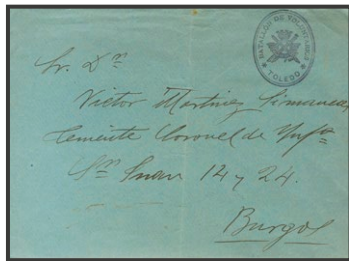 BATALLON DE VOLUNTARIOS
TOLEDO
Sr. Dn
Victor Martinez Simancas
Teniente Coronel de Infª
Sn Juan 14 y 24.
Burgos